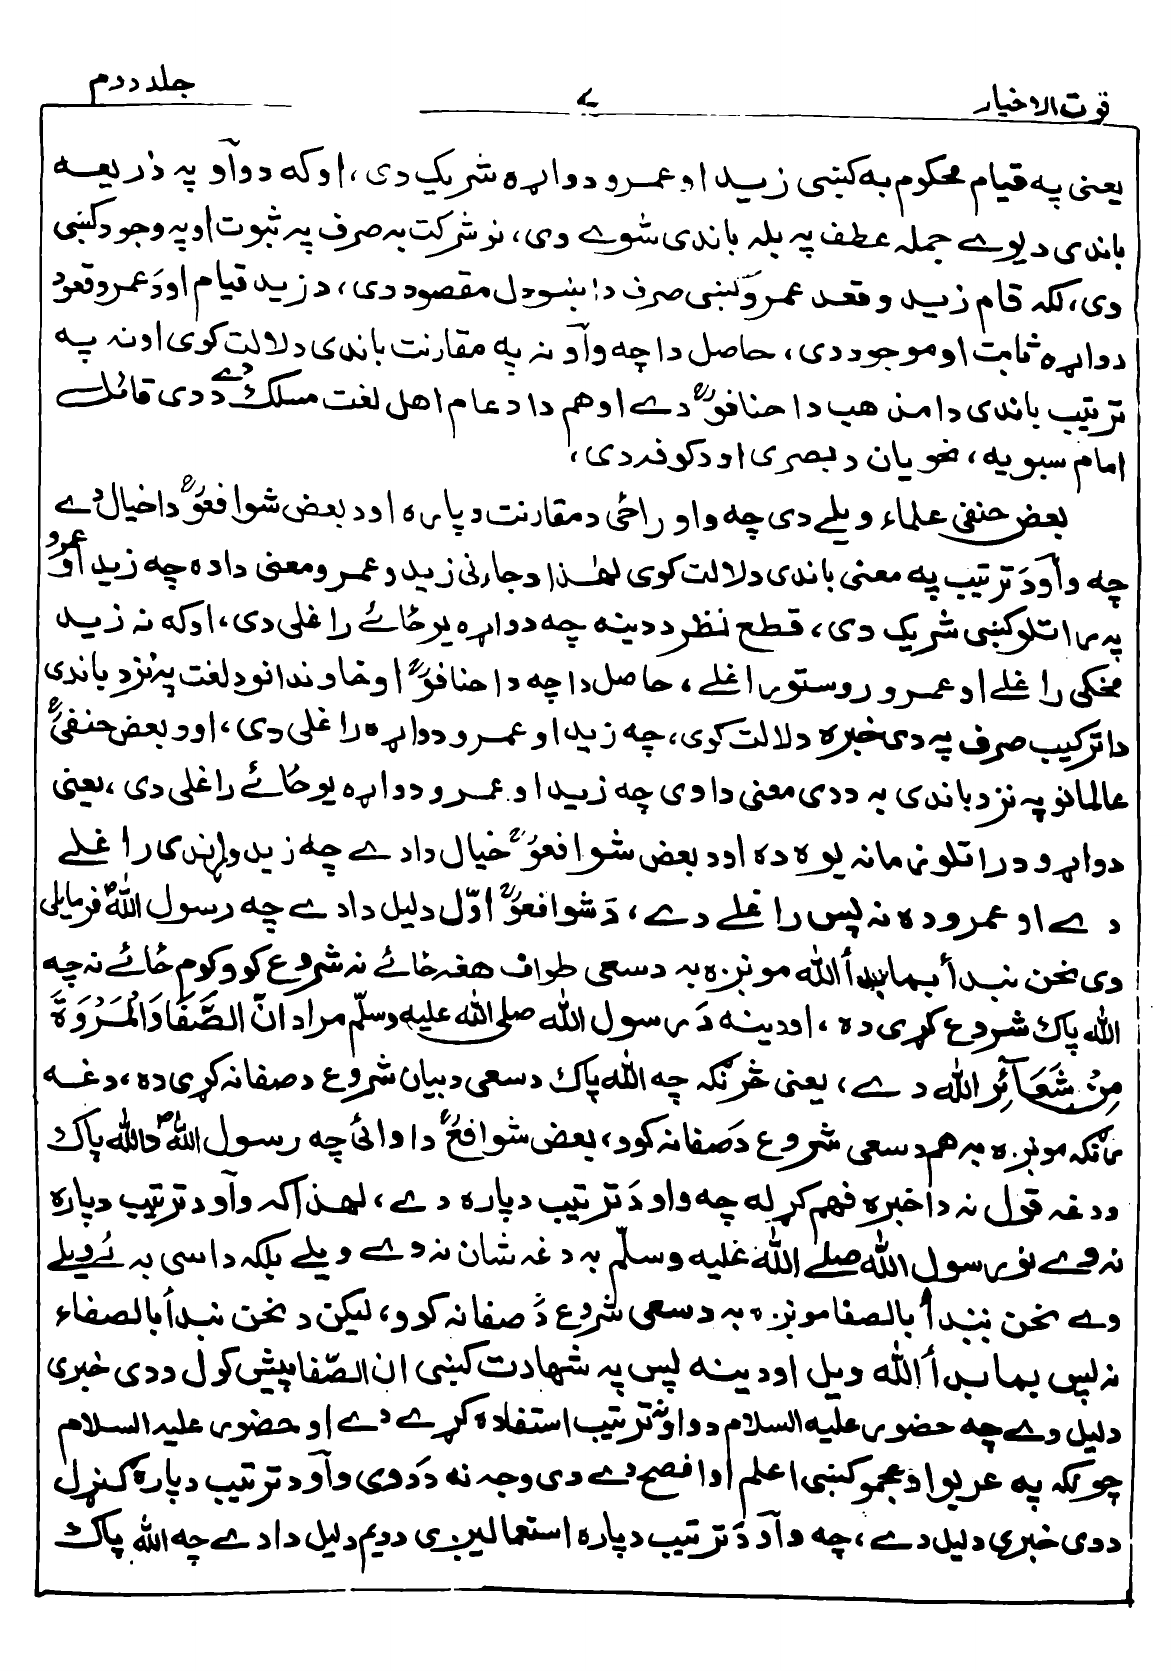 قوت الاخیار ۷ جلد دوم
یعنی په قیام محکوم به کښی زید او عمرو دواړه شریک دی، اوکه دوآو په ذریعه
باندی دیوے جملہ عطف په بله باندی شوے وی، نو شرکت به صرف په ثبوت اوپه وجود کښی
وی، لکه قام زید وقعد عمرو کښی صرف دا ښودل مقصود دی، د زید قیام اودَ عمرو قعود
دواړه ثابت او موجود دی، حاصل دا چه وآو نه په مقارنت باندی دلالت کوی اونه په
ترتیب باندی دا مذهب دا حنافوؒ دے اوهم دا د عام اهل لغت مسلک دے ددی قائل
امام سبویه، نحویان د بصری اود کوفه دی،
بعض حنفی علماء ویلے دی چه واو راځی د مقارنت دپاره اود بعض شوافعوؒ دا خیال دے
چه وآو دَ ترتیب په معنی باندی دلالت کوی لهٰذا د جارنی زید وعمرو معنی داده چه زید او عمرو
په راتلو کښی شریک دی، قطع نظر ددینه چه دواړه یوځائے راغلی دی، اوکه نه زید
مخکی راغلے او عمرو روستو راغلے، حاصل دا چه دا حنافوؒ او خاوندانو د لغت په نزد باندی
دا ترکیب صرف په دی خبره دلالت کوی، چه زید او عمرو دواړه راغلی دی، اود بعض حنفیؒ
عالمانو په نزد باندی به ددی معنی داوی چه زید او عمرو دواړه یوځائے راغلی دی، یعنی
دواړو د راتلو زمانه یوه ده اود بعض شوافعوؒ خیال دادے چه زید وړاندی راغلے
دے او عمرو ده نه پس راغلے دے، دَ شوافعوؒ اوّل دلیل دادے چه رسول اللهؐ فرمایلی
دی نحن نبدأ بما بدأ الله مونږه به د سعی طواف هغه ځائے نه شروع کوو کوم ځائے نه چه
الله پاک شروع کړی ده، اودینه دَ رسول الله صلی الله علیه وسلّم مراد انّ الصَّفَا وَالْمَرْوَةَ
مِنْ شَعَآئِرِ الله دے، یعنی څرنګه چه الله پاک د سعی دبیان شروع د صفا نه کړی ده، دغه
رنګه مونږه به هم د سعی شروع دَ صفا نه کوو، بعض شوافعؒ داوائی چه رسول اللهؐ د الله پاک
ددغه قول نه دا خبره فهم کړله چه واو دَ ترتیب دپاره دے، لهذا که وآو د ترتیب دپاره
نه وے نو رسول الله صلے الله علیه وسلّم به دغه شان نه دے ویلے بلکه داسی به ئے ویلے
وے نحن نبتدأ بالصفا مونږه به د سعی شروع دَ صفا نه کوو، لیکن د نحن نبدأ بالصفاء
نه پس بما بدأ الله ویل اودینه پس په شهادت کښی ان الصّفا پیش کول ددی خبری
دلیل دے چه حضور علیه السلام د واو نه ترتیب استفاده کړے دے او حضور علیه السلام
چونکه په عربو او عجمو کښی اعلم او افصح دے دی وجه نه دَدوی وآو د ترتیب دپاره ګنړل
ددی خبری دلیل دے، چه وآو دَ ترتیب دپاره استعمالیږی دویم دلیل دادے چه الله پاک